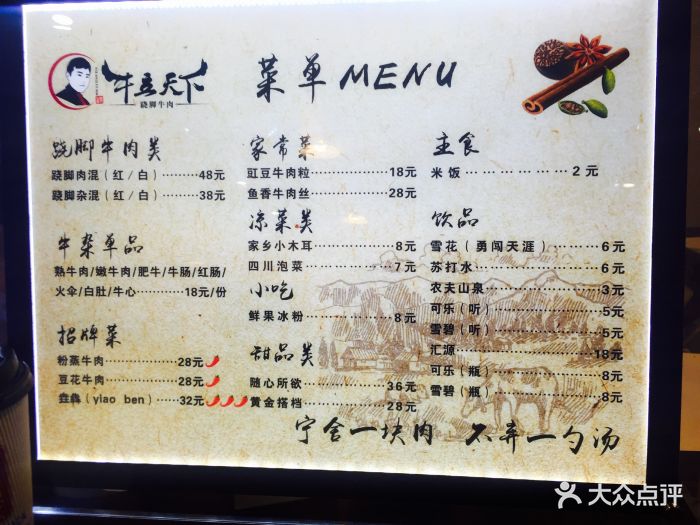 牛立天下
跷脚牛肉
菜单MENU
跷脚牛肉类
跷脚肉混(红/白)………48元
跷脚杂混(红/白)………38元
牛杂单品
熟牛肉/嫩牛肉/肥牛/牛肠/红肠/
火伞/白肚/牛心………18元/份
招牌菜
粉蒸牛肉………28元
豆花牛肉………28元
(yiao ben)………32元
家常菜
豇豆牛肉粒………18元
鱼香牛肉丝………28元
凉菜类
家乡小木耳………8元
四川泡菜………7元
小吃
鲜果冰粉………8元
甜品类
随心所欲………36元
黄金搭档………28元
主食
米饭………2元
饮品
雪花(勇闯天涯)………6元
苏打水………6元
农夫山泉………3元
可乐(听)………5元
雪碧(听)………5元
汇源………18元
可乐(瓶)………8元
雪碧(瓶)………8元
宁舍一块肉 不弃一勺汤
大众点评